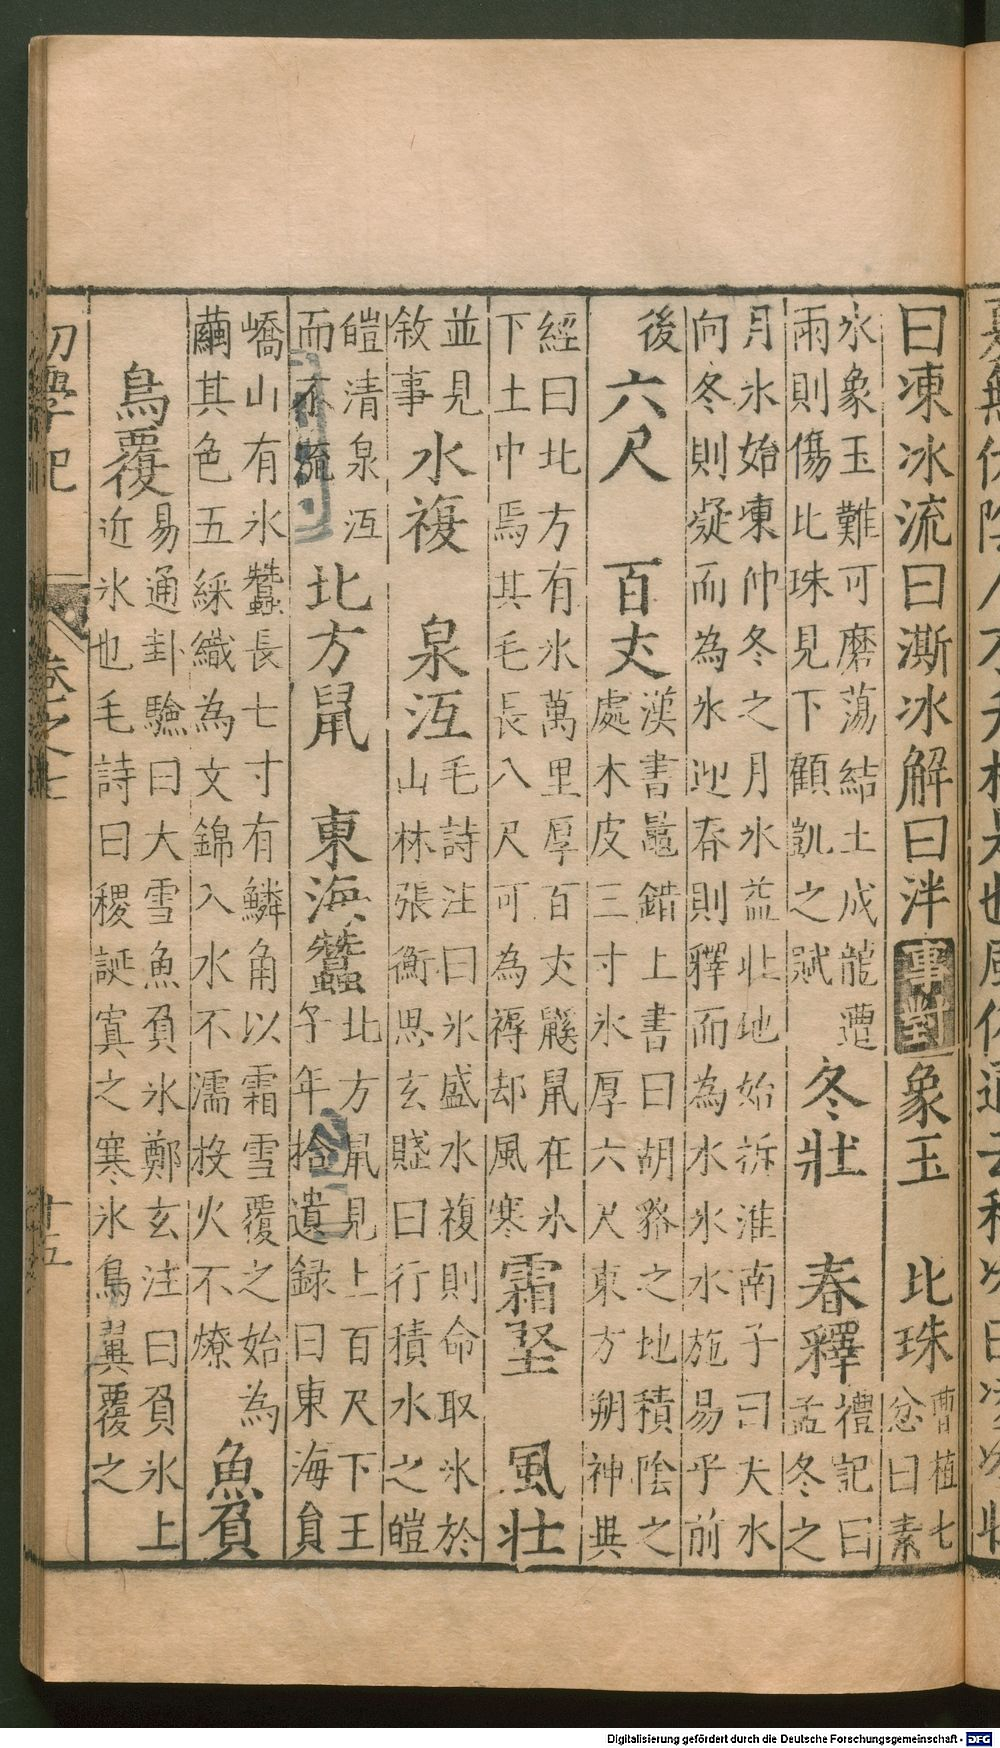 曰凍冰流曰澌冰解曰泮事對象玉　比珠曹植七忿曰素
氷象玉難可磨蕩結土成龍遭雨則傷比珠見下顧凱之賦冬壯　春釋禮記曰孟冬之
月氷始凍仲冬之月氷益壯地始拆淮南子曰夫水向冬則凝而為氷迎春則釋而為水氷水施易乎前
後六尺　百丈漢書鼂錯上書曰胡貉之地積陰之處木皮三寸氷厚六尺東方朔神異
經曰北方有氷萬里厚百丈鼷鼠在氷下土中焉其毛長八尺可為褥却風寒霜堅　風壯
並見敘事水複　泉沍毛詩注曰氷盛水複則命取氷於山林張衡思玄賦曰行積氷之皚
皚清泉沍而不流北方鼠　東海蠶北方鼠見上百尺下王子年拾遺録曰東海員
嶠山有氷蠶長七寸有鱗角以霜雪覆之始為繭其色五綵織為文錦入水不濡投火不燎魚負
鳥覆易通卦驗曰大雪魚負氷鄭玄注曰負氷上近氷也毛詩曰稷誕寘之寒氷鳥翼覆之
初學記　卷之七　十五
Digitalisierung gefördert durch die Deutsche Forschungsgemeinschaft - DFG